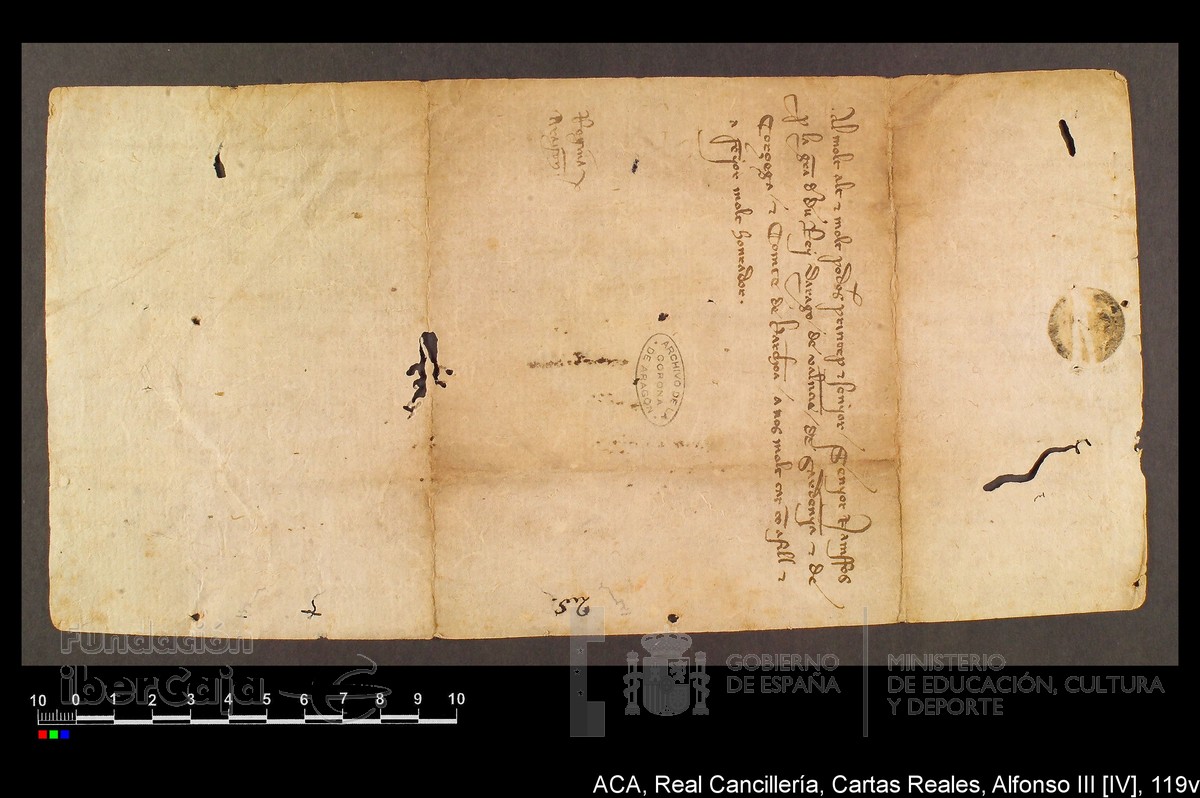 Al molt alt ⁊ molt poderos princep ⁊ senyor Senyor Namffos
p la gra d du Rey Darago de valencia de Sardenya ⁊ de
Corcega ⁊ Comte de Barchna a nos molt car
⁊ senyor molt honrador.
ARCHIVO DE LA
CORONA
DE ARAGON
Fundación
iberCaja
10 0 1 2 3 4 5 6 7 8 9 10
GOBIERNO
DE ESPAÑA
MINISTERIO
DE EDUCACIÓN, CULTURA
Y DEPORTE
ACA, Real Cancillería, Cartas Reales, Alfonso III [IV], 119v